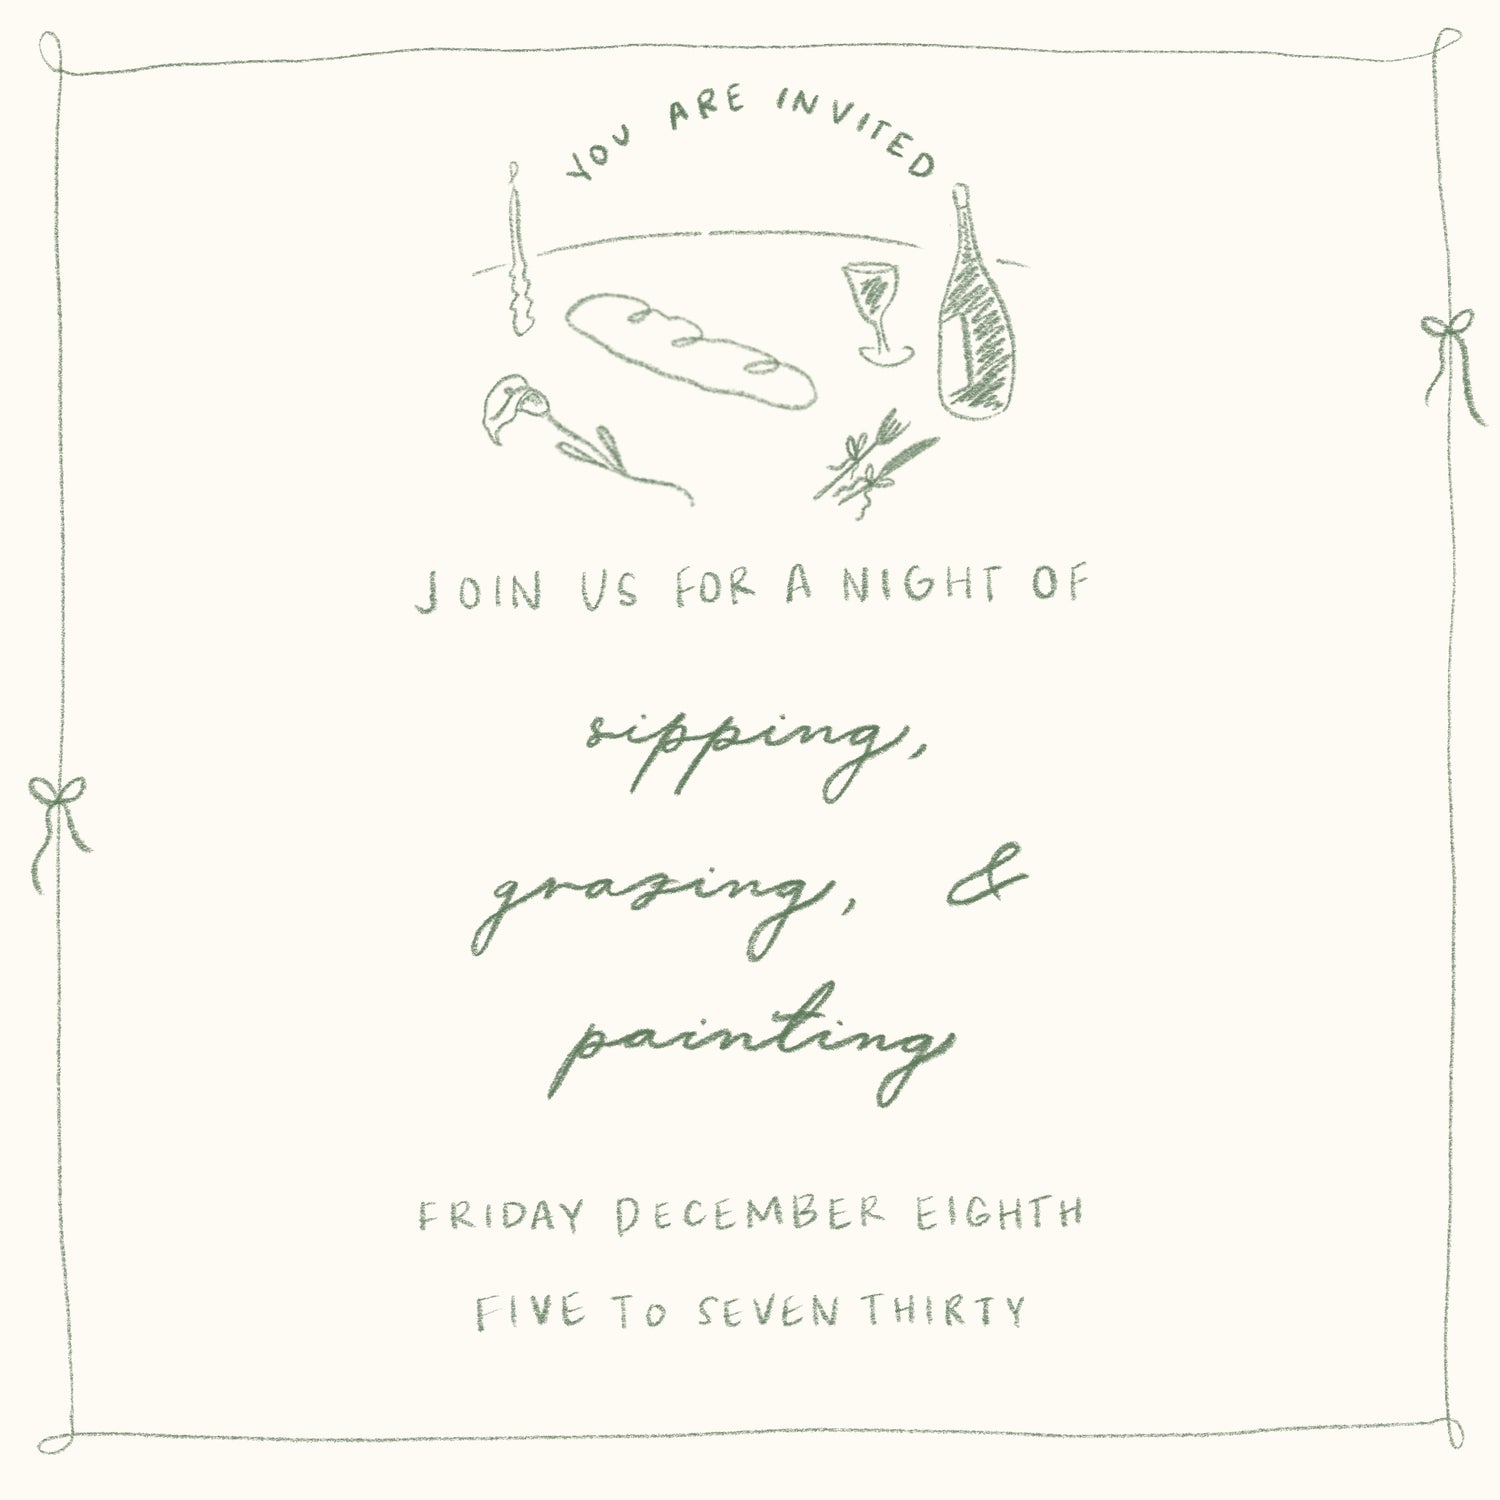 YOU ARE INVITED
JOIN US FOR A NIGHT OF
sipping,
grazing, &
painting
FRIDAY DECEMBER EIGHTH
FIVE TO SEVEN THIRTY